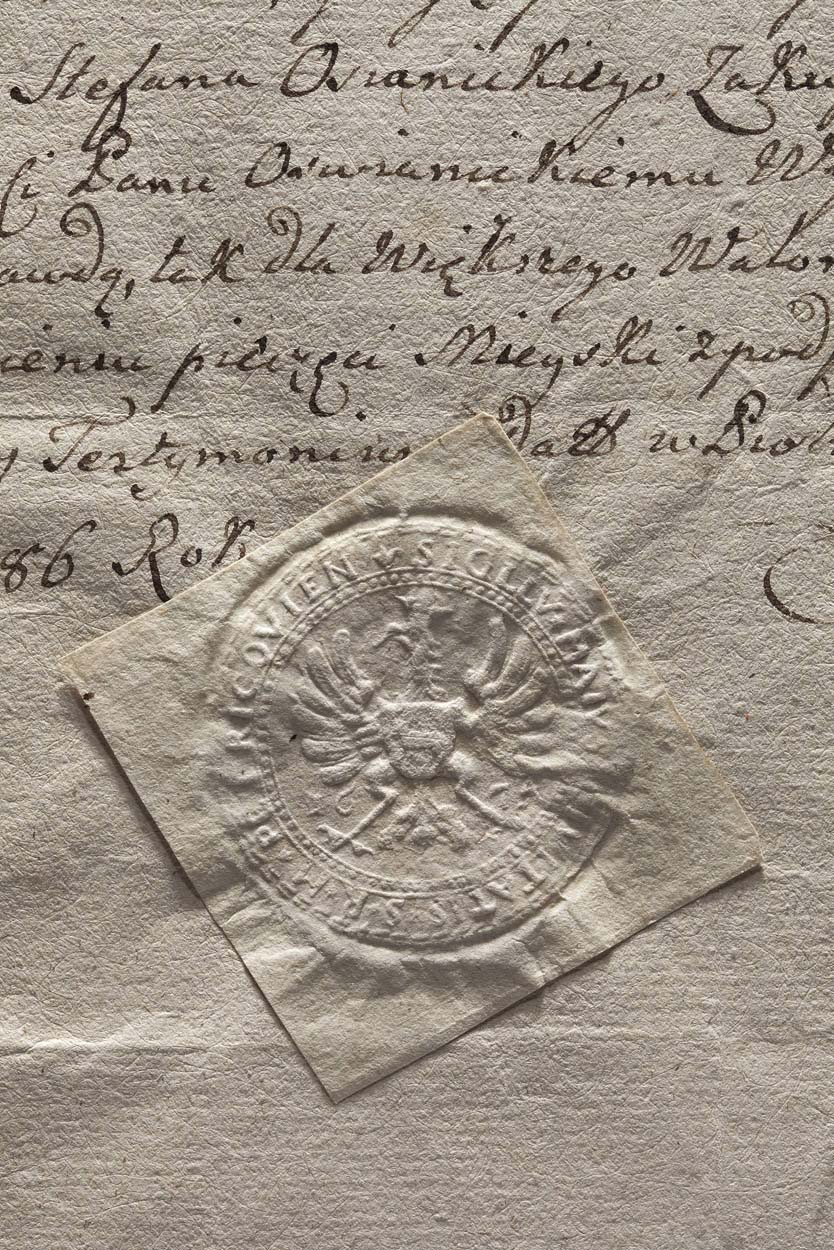 Stefana Osranickiego Zakr
ści Panu Oswranickiemu W
awdą, tak dla Większego Walor
ieniu pieczęci Mieyski zpod
y Testymonium Datt w Piotr
86 Rok
SIGILLV
ITATIS S R M PE RICOVIEN